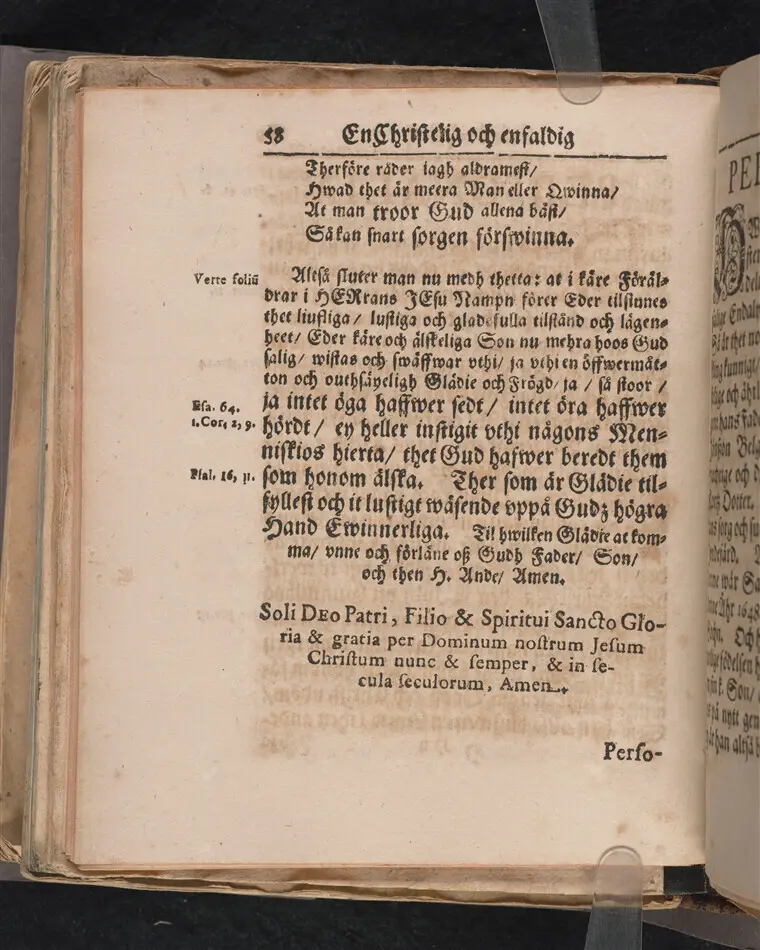 58 En Christelig och enfaldig
Therföre råder iagh aldramest/
Hwad thet är meera Man eller Qwinna/
At man troor Gud allena bäst/
Så kan snart sorgen förswinna.
Verte foliū
Altså sluter man nu medh thetta: at i käre Föräl-
drar i HERrans JEsu Nampn förer Eder tilsinnes
thet liufliga/ lustiga och gladesulla tilstånd och lägen-
heet/ Eder käre och älskeliga Son nu mehra hoos Gud
salig/ wistas och swäffwar vthi/ ja vthi en öffwermåt-
ton och outhsäyeligh Glädie och Frögd/ ja / så stoor /
Esa. 64.
ja intet öga haffwer sedt/ intet öra haffwer
1. Cor, 2, 9.
hördt/ ey heller instigit vthi någons Men-
niskios hierta/ thet Gud hafwer beredt them
Psal. 16, 11.
som honom älska. Ther som är Glädie til-
fyllest och it lustigt wäsende vppå Gudz högra
Hand Ewinnerliga. Til hwilken Glädie at kom-
ma/ vnne och förläne oß Gudh Fader/ Son/
och then H. Ande/ Amen.
Soli DEo Patri, Filio & Spiritui Sancto Glo-
ria & gratia per Dominum nostrum Jesum
Christum nunc & semper, & in se-
cula seculorum, Amen.
Perso-
PE